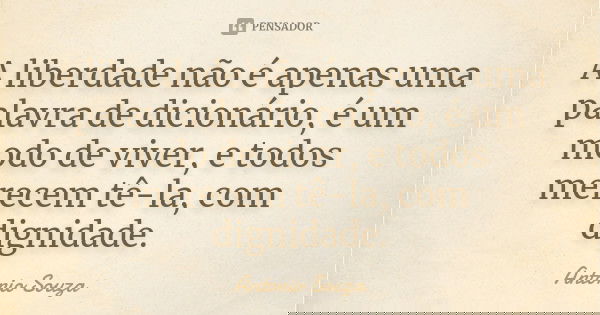 PENSADOR
A liberdade não é apenas uma
palavra de dicionário, é um
modo de viver, e todos
merecem tê-la, com
dignidade.
Antonio Souza